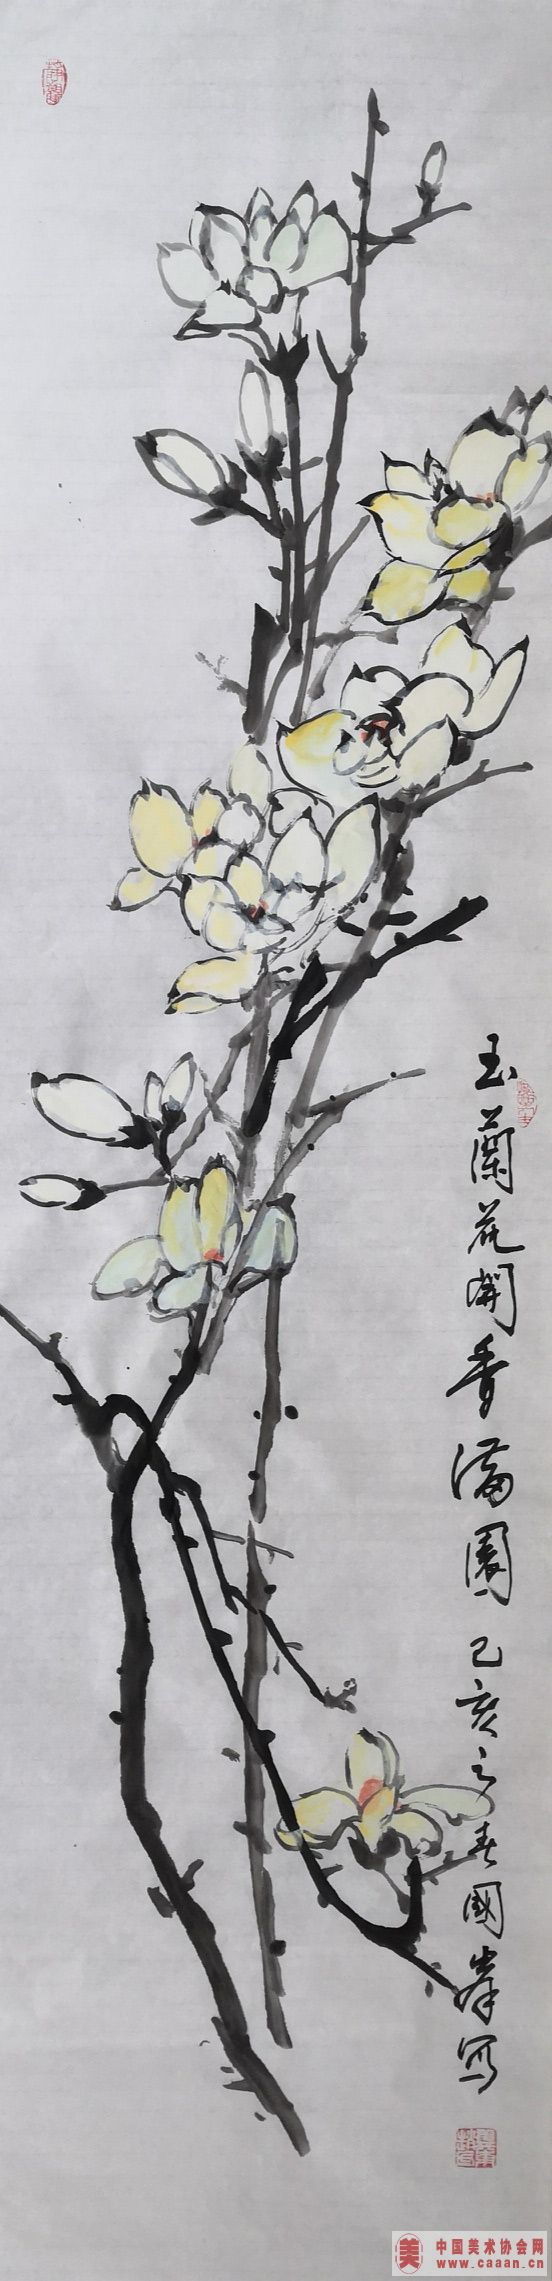 玉蘭花開香滿園 己亥之春國峯写
美 中国美术协会网
www.caaan.cn